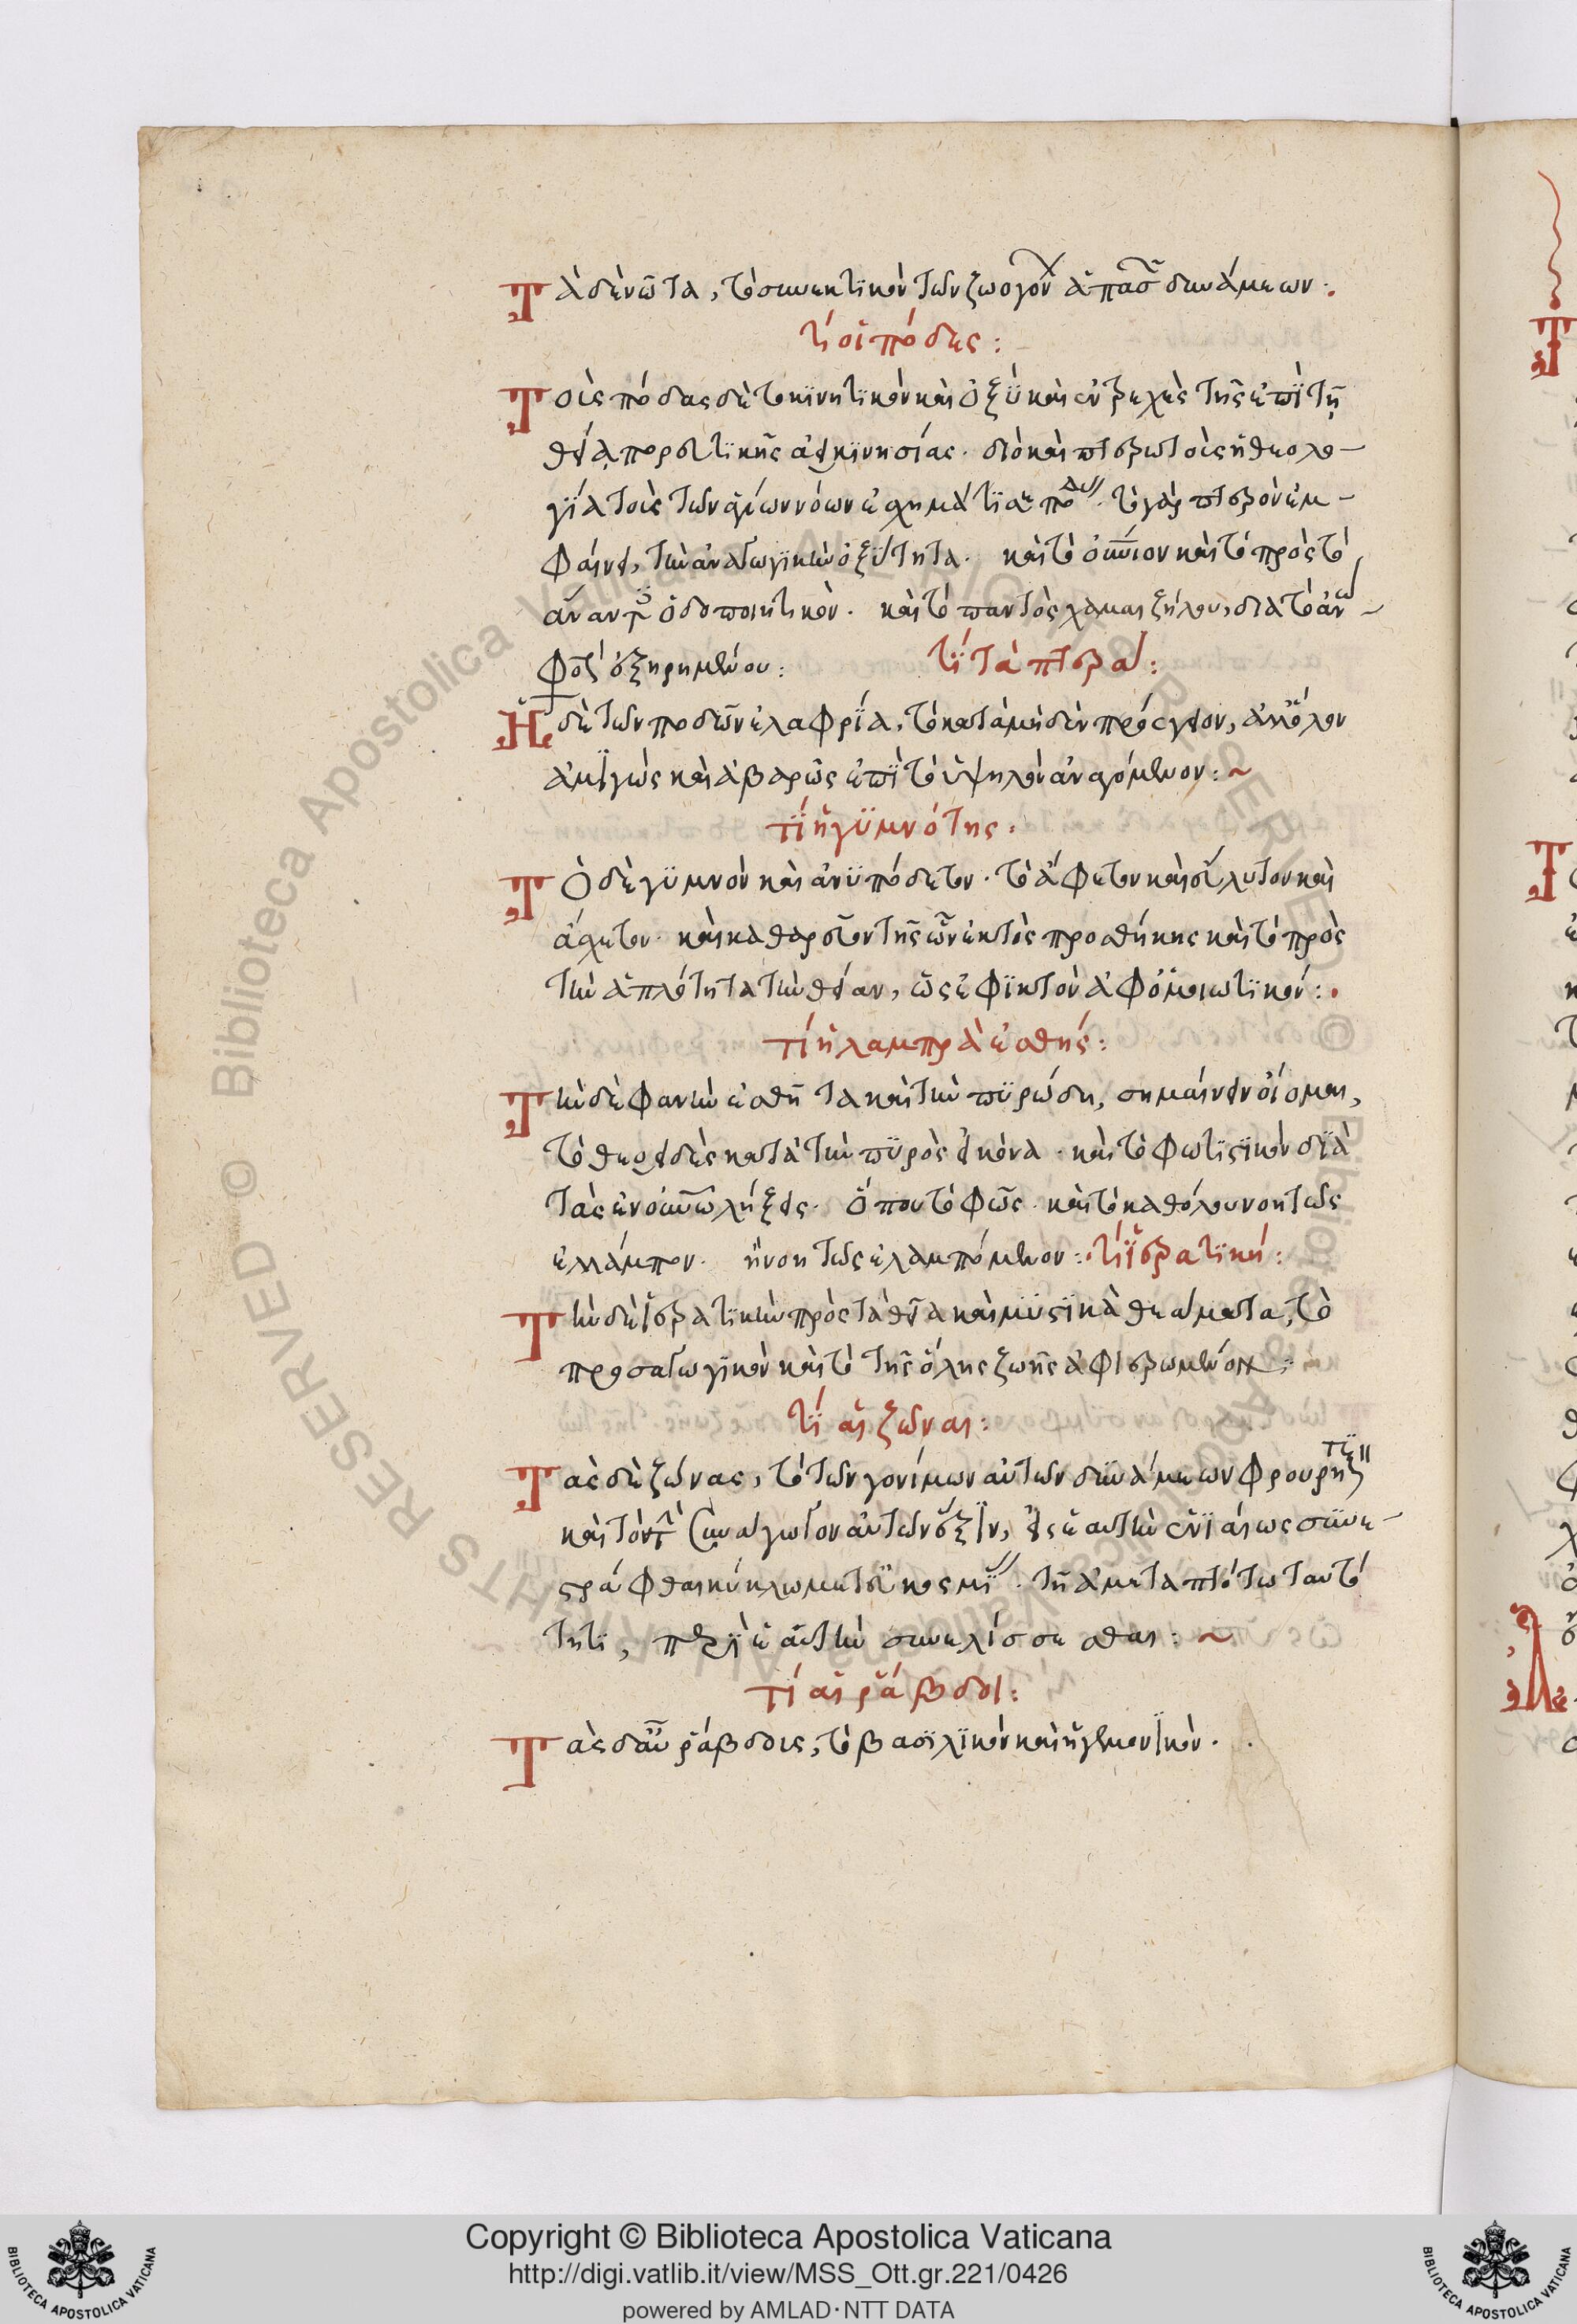 Τὰ δὲ νῶτα, τὸ συνεκτικὸν τῶν ζωογόν ἁπασ δυνάμεων :.
τί οἱ πόδες :
Τοὺς πόδας δὲ το κϊνητϊκὸν καὶ ὀξὺ καὶ ἐντρεχὲς τῆς ἐπὶ τῆ
θεία πορευτικῆς ἀεικϊνησίας. διὸ καὶ πτερωτοὺς ἡ θεολο-
γία τοὺς τῶν ἁγίων νόων ἐσχημάτισε πόδας. τὸ γὰρ πτερὸν ἐμ-
φαίνει, τὴν ἀναγωγικὴν ὀξύτητα. καὶ τὸ οὐνιον καὶ τὸ πρὸς τὸ
ἄναντες ὁδοποιητικὸν. καὶ τὸ παντὸς χαμαιζήλου, δια τὸ ἀνω-
φος ἐξηρημένου : τί τὰ πτερά :
Ἡ δὲ τῶν ποδῶν ἐλαφρία, τὸ κατὰ μηδὲν πρόσγειον, ἀλλ᾽ ὅλον
ἀμϊγῶς καὶ ἀβαρῶς ἐπὶ τὸ ὑψηλὸν ἀναγόμενον : ~
τί ἡ γϋμνότης.
Τὸ δὲ γϋμνὸν καὶ ἀνϋπόδετον. τὸ ἄφετον καὶ εὔλυτον καὶ
ἄσχετον. καὶ καθαρεῦον τῆς τῶν ἐκτὸς προσθήκης καὶ τὸ πρὸς
τὴν ἁπλότητα τὴν θείαν, ὡς ἐφϊκτὸν ἀφομοιωτϊκόν :.
τί ἡ λαμπρὰ ἐσθής :
Τὴν δὲ φανὴν ἐσθῆτα καὶ τὴν πϋρώδη, σημαίνειν οἴομαι,
τὸ θεοειδὲς κατὰ τὴν πϋρὸς εἰκόνα. καὶ τὸ φωτϊστϊκὸν διὰ
τὰς ἐν οὐνῶ λήξεις. ὅπου τὸ φῶς. καὶ τὸ καθόλου νοητῶς
ἐλλάμπον. ἢ νοητῶς ἐλαμπόμενον :. τί ἱερατϊκή :
Τὴν δὲ ἱερατϊκὴν πρὸς τὰ θεῖα καὶ μυστϊκὰ θεάματα, τὸ
προσαγωγϊκὸν καὶ τὸ τῆς ὅλης ζωῆς ἀφιερωμένον :
τί αἱ ζῶναι :
Τὰς δὲ ζώνας, τὸ τῶν γονίμων αὐτῶν δυνάμεων φρουρητϊ
καὶ τὸν συναγωγὸν αὐτῶν ἕξϊν, εἰς ἑαυτὴν ἑνιαίως συνε-
στράφθαι κύκλω μετ᾽ εὐκοσμί. τῆ ἀμεταπτότω ταυτό
τητι, περὶ ἑαυτὴν συνελίσσεσθαι : ~
τί αἱ ῥάβδοι :
Τὰς δ᾽αὖ ῥάβδους, τὸ βασϊλϊκὸν καὶ ἡγεμονϊκὸν.
Copyright © Biblioteca Apostolica Vaticana
http://digi.vatlib.it/view/MSS_Ott.gr.221/0426
powered by AMLAD·NTT DATA